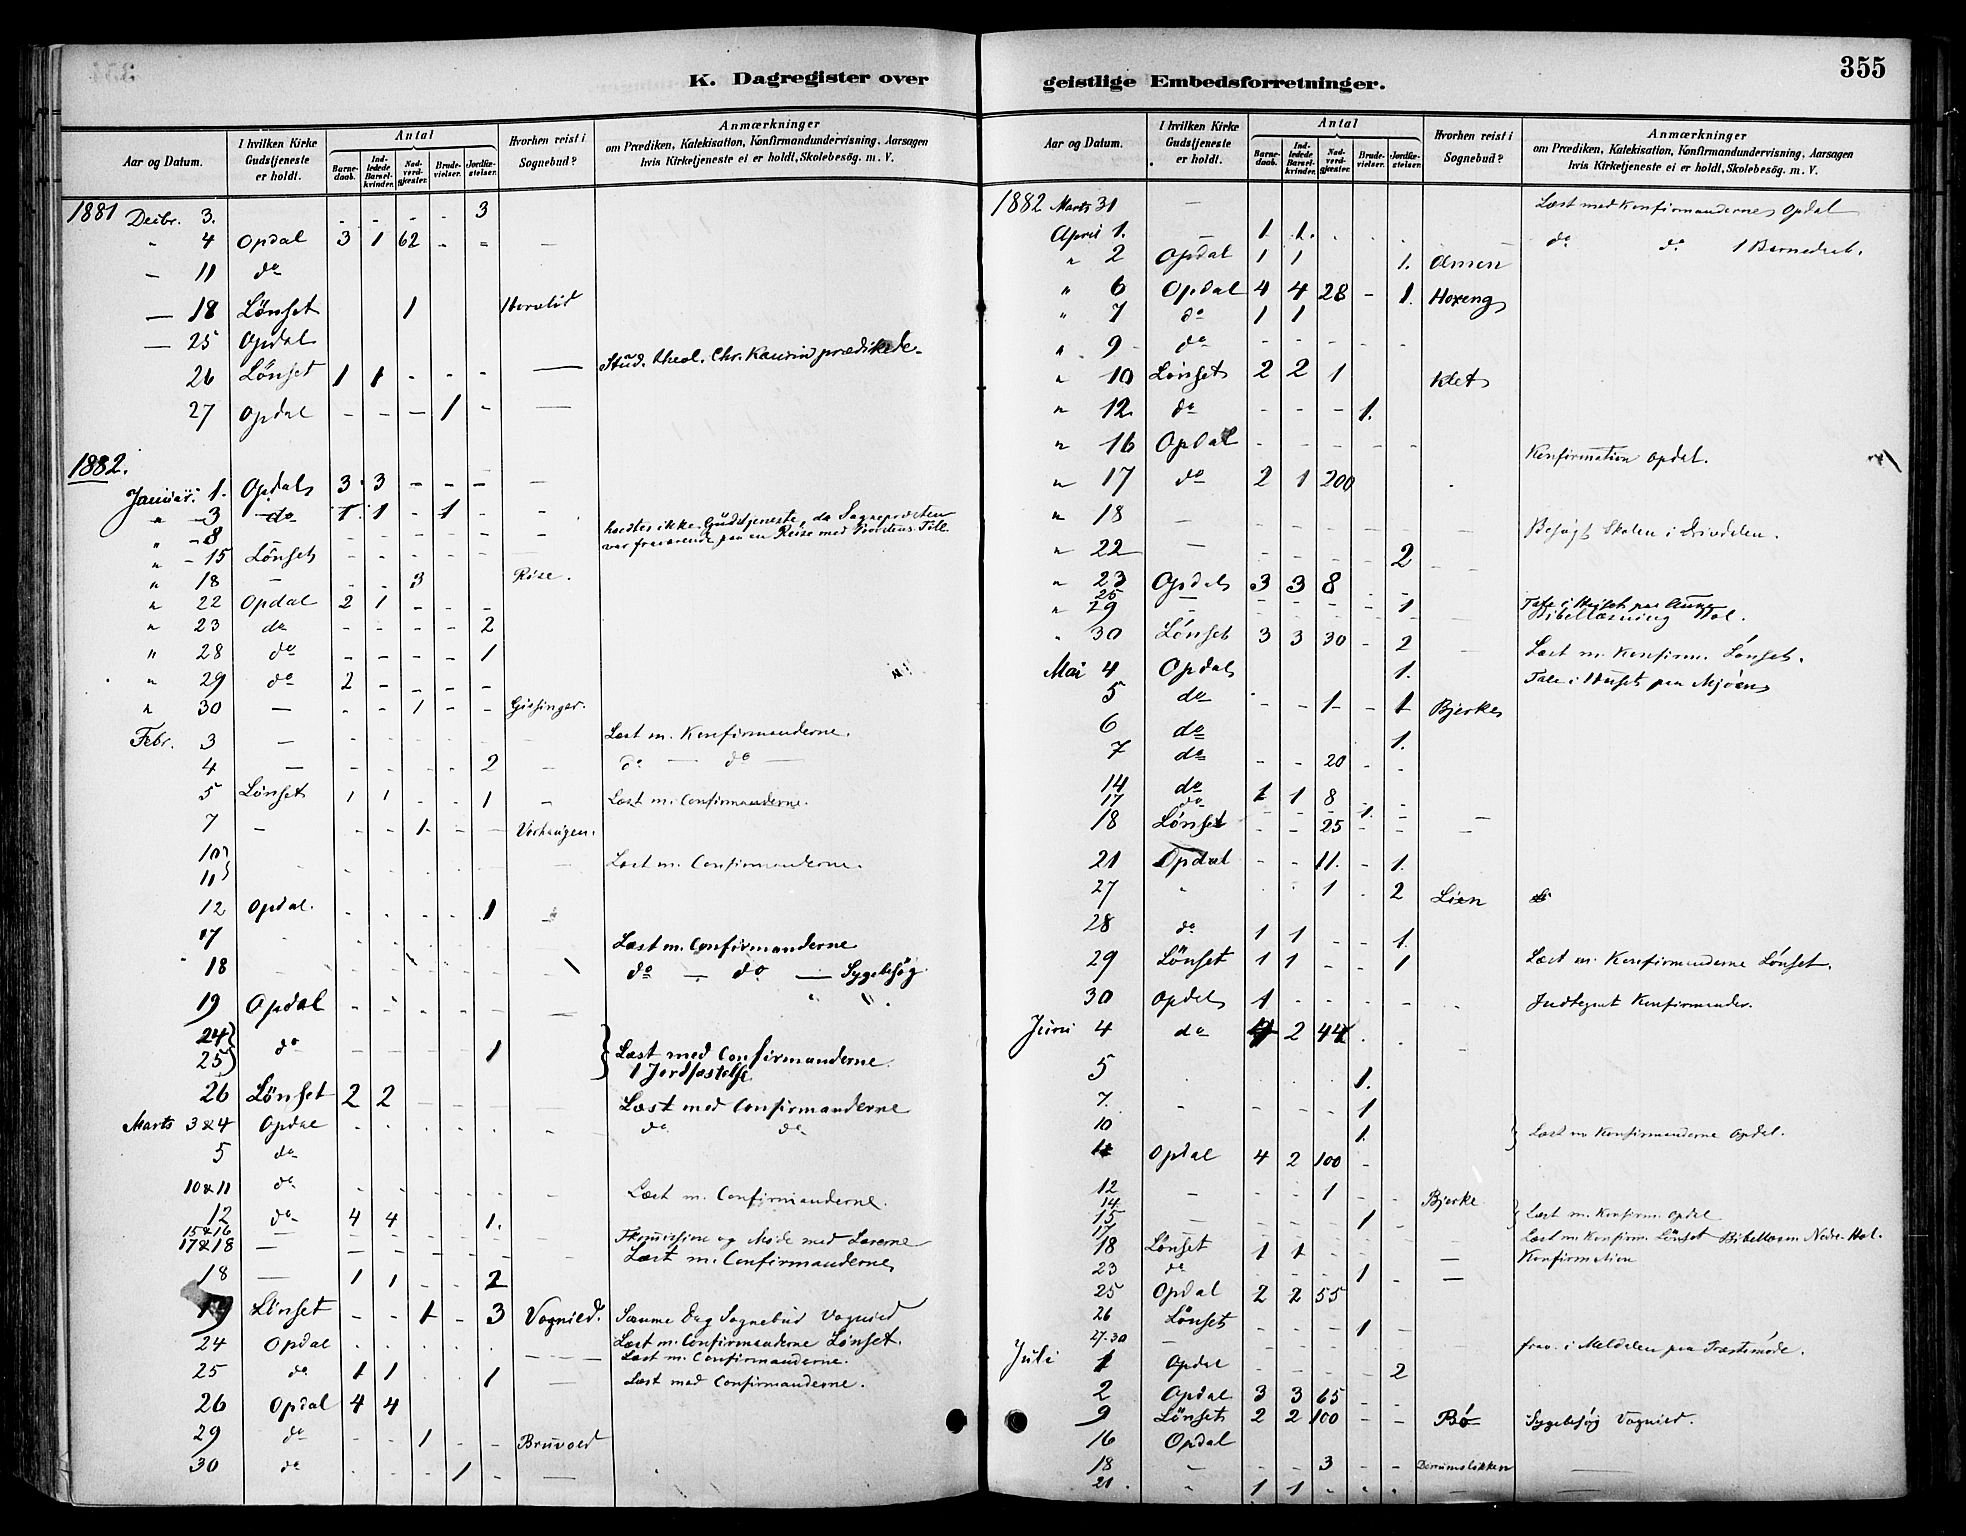 K. Dagregister over
Aar og Datum. | I hvilken Kirke Gudstjeneste er holdt. | Antal | Barnedaab. | Indledede Barselkvinder. | Nadverdgjæster. | Brudevielser. | Jordfæstelser. | Hvorhen reist i Sognebud? | Anmærkninger om Prædiken, Katekisation, Konfirmandundervisning, Aarsagen hvis Kirketjeneste ei er holdt, Skolebesøg. m. V.
1881 Decbr. 3. - - - - 3
" 4 Opdal 3 1 62 - - —
— 11 do
— 18 Lönset 1
— 25 Opdal
26 Lönset 1 1 - - - — Stud. theol. Chr. prædikede
27 Opdal - - - 1 - —
1882.
Januar. 1. Opdal 3 3 - - - -
" 3 do 1 1 - 1 - -
" 8 - holdtes ikke Gudstjeneste, da Sognepræsten
var fraværende paa en Reise med
" 15 Lönset
" 18 - - - 3 Rise.
" 22 Opdal 2 1 - - -
" 23 do - - - - 2
" 28 do - - - - 1
" 29 do 2 - - - -
" 30 — - - 1 - - Gissinger.
Febr. 3 — Læst m. Konfirmanderne.
4 — - - - - 2 - do — do —
5 Lönset 1 1 - - 1 - Læst m. Confirmanderne.
7 - - - 1 - - Vorhaugen.
10
11 Læst m. Confirmanderne.
12 Opdal. - - - - 1 -
17 Læst m. Confirmanderne
18 do — do — Sygebesøg
19 Opdal - - - - - " "
24
25 do - - - - 1 Læst med Confirmanderne.
1 Jordfæstelse
26 Lönset 2 2 - - - - Læst med Confirmanderne
Marts 3 & 4 Opdal do do
5 do
10 & 11 do Læst m. Confirmanderne.
12 do 4 4 - - 1.
15 & 16 — og Møde med Lærerne
17 & 18 — Læst m. Confirmanderne
18 — 1 1 - - 2
19 Lönset - - 1 - 3 Vognild. Samme Dag Sognebud Vognild
24 Opdal Læst m. Confirmanderne Lönset.
Læst m. Confirmanderne.
25 do 1 1 - - 1 — Læst med Confirmanderne.
26 Opdal 4 4
29 do - - 1 - - Bruvold
30 do - - - 1 - —
geistlige Embedsforretninger.
355
Aar og Datum. | I hvilken Kirke Gudstjeneste er holdt. | Antal | Barnedaab. | Indledede Barselkvinder. | Nadverdgjæster. | Brudevielser. | Jordfæstelser. | Hvorhen reist i Sognebud? | Anmærkninger om Prædiken, Katekisation, Konfirmandundervisning, Aarsagen hvis Kirketjeneste ei er holdt, Skolebesøg. m. V.
1882 Marts 31 — Læst med Konfirmanderne Opdal
April 1. — 1 1. - - - do do 1 Barnedaab.
" 2 Opdal 1 1 1.
" 6 Opdal 4 4 28 - 1. Hoxeng
" 7 do 1 1
" 9 do - - - - -
" 10 Lönset 2 2 1 Klet
" 12. do - - - 1.
" 16 Opdal - - - - - -
Konfirmation Opdal.
" 17 do 2 1 200
" 18 - Besøgt Skolen i Drivdalen.
" 22 — - - - - 2
" 23 Opdal 3 3 8 - -
25
" 29 - - - - - 1 Tale i Huset paa Aune
Bibellæsning Hol.
" 30 Lönset 3 3 30 - 2 Læst m. Konfirm. Lönset.
Mai 4 Opdal 1. Tale i Huset paa Mjöen
5 do - - 1 - 1 Bjerke
6 do 1.
7 do - - 20 - -
14 do 1 1 8 - -
17 do - - - 1. -
18 Lönset - - 25 - - -
21 Opdal - - 11. - 1.
27 " - - 1 - 2 Lien
28 do 1 1 - - 1.
29 Lönset 1 1 - - 1 Læst m. Konfirmanderne Lönset.
30 Opdal 1 - - - - - Indtegnet Konfirmander.
Juni 4 do 4 2 44
5 1.
7. - - - - 1
10 1. Læst m. Konfirmanderne Opdal.
11 Opdal 4 2 100 -
12 — - - 1 - - Bjerke
14
15 — - - - 1 - Læst m. Konfirm. Opdal
17 Læst m. Konfirm. Lönset Bibellæsn. Nedre-Hol.
18 Lönset 1 1 — Konfirmation
23 do - - - 1 - —
25 Opdal 2 2 55
26 Lönset - - - 1 -
27-30 — frav. i Meldalen paa Præstemöde.
Juli 1 Opdal - - - - 2
2 Opdal 3 3 65 - -
9 Lönset 2 2 100 - - Bö Sygebesøg Vognild.
16 Opdal
18 - - - 3 - - —
21 " 1 1 - - - -